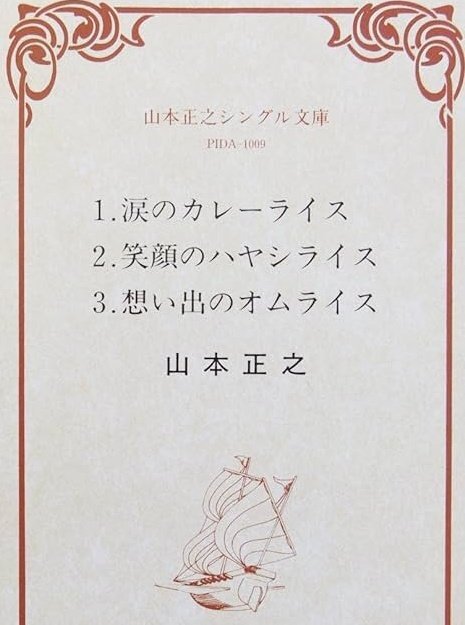 山本正之シングル文庫
PIDA-1009
1.涙のカレーライス
2.笑顔のハヤシライス
3.想い出のオムライス
山本正之